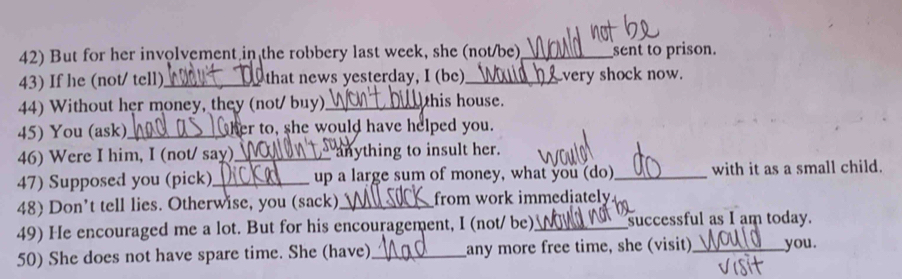 42) But for her involvement in the robbery last week, she (not/be) would not be sent to prison.
43) If he (not/ tell) hadn't told that news yesterday, I (be) would be very shock now.
44) Without her money, they (not/ buy) won't buy this house.
45) You (ask) had as her to, she would have helped you.
46) Were I him, I (not/ say) wouldn't say anything to insult her.
47) Supposed you (pick) picked up a large sum of money, what would you (do) do with it as a small child.
48) Don't tell lies. Otherwise, you (sack) will sack from work immediately.
49) He encouraged me a lot. But for his encouragement, I (not/ be) would not be successful as I am today.
50) She does not have spare time. She (have) had any more free time, she (visit) would visit you.